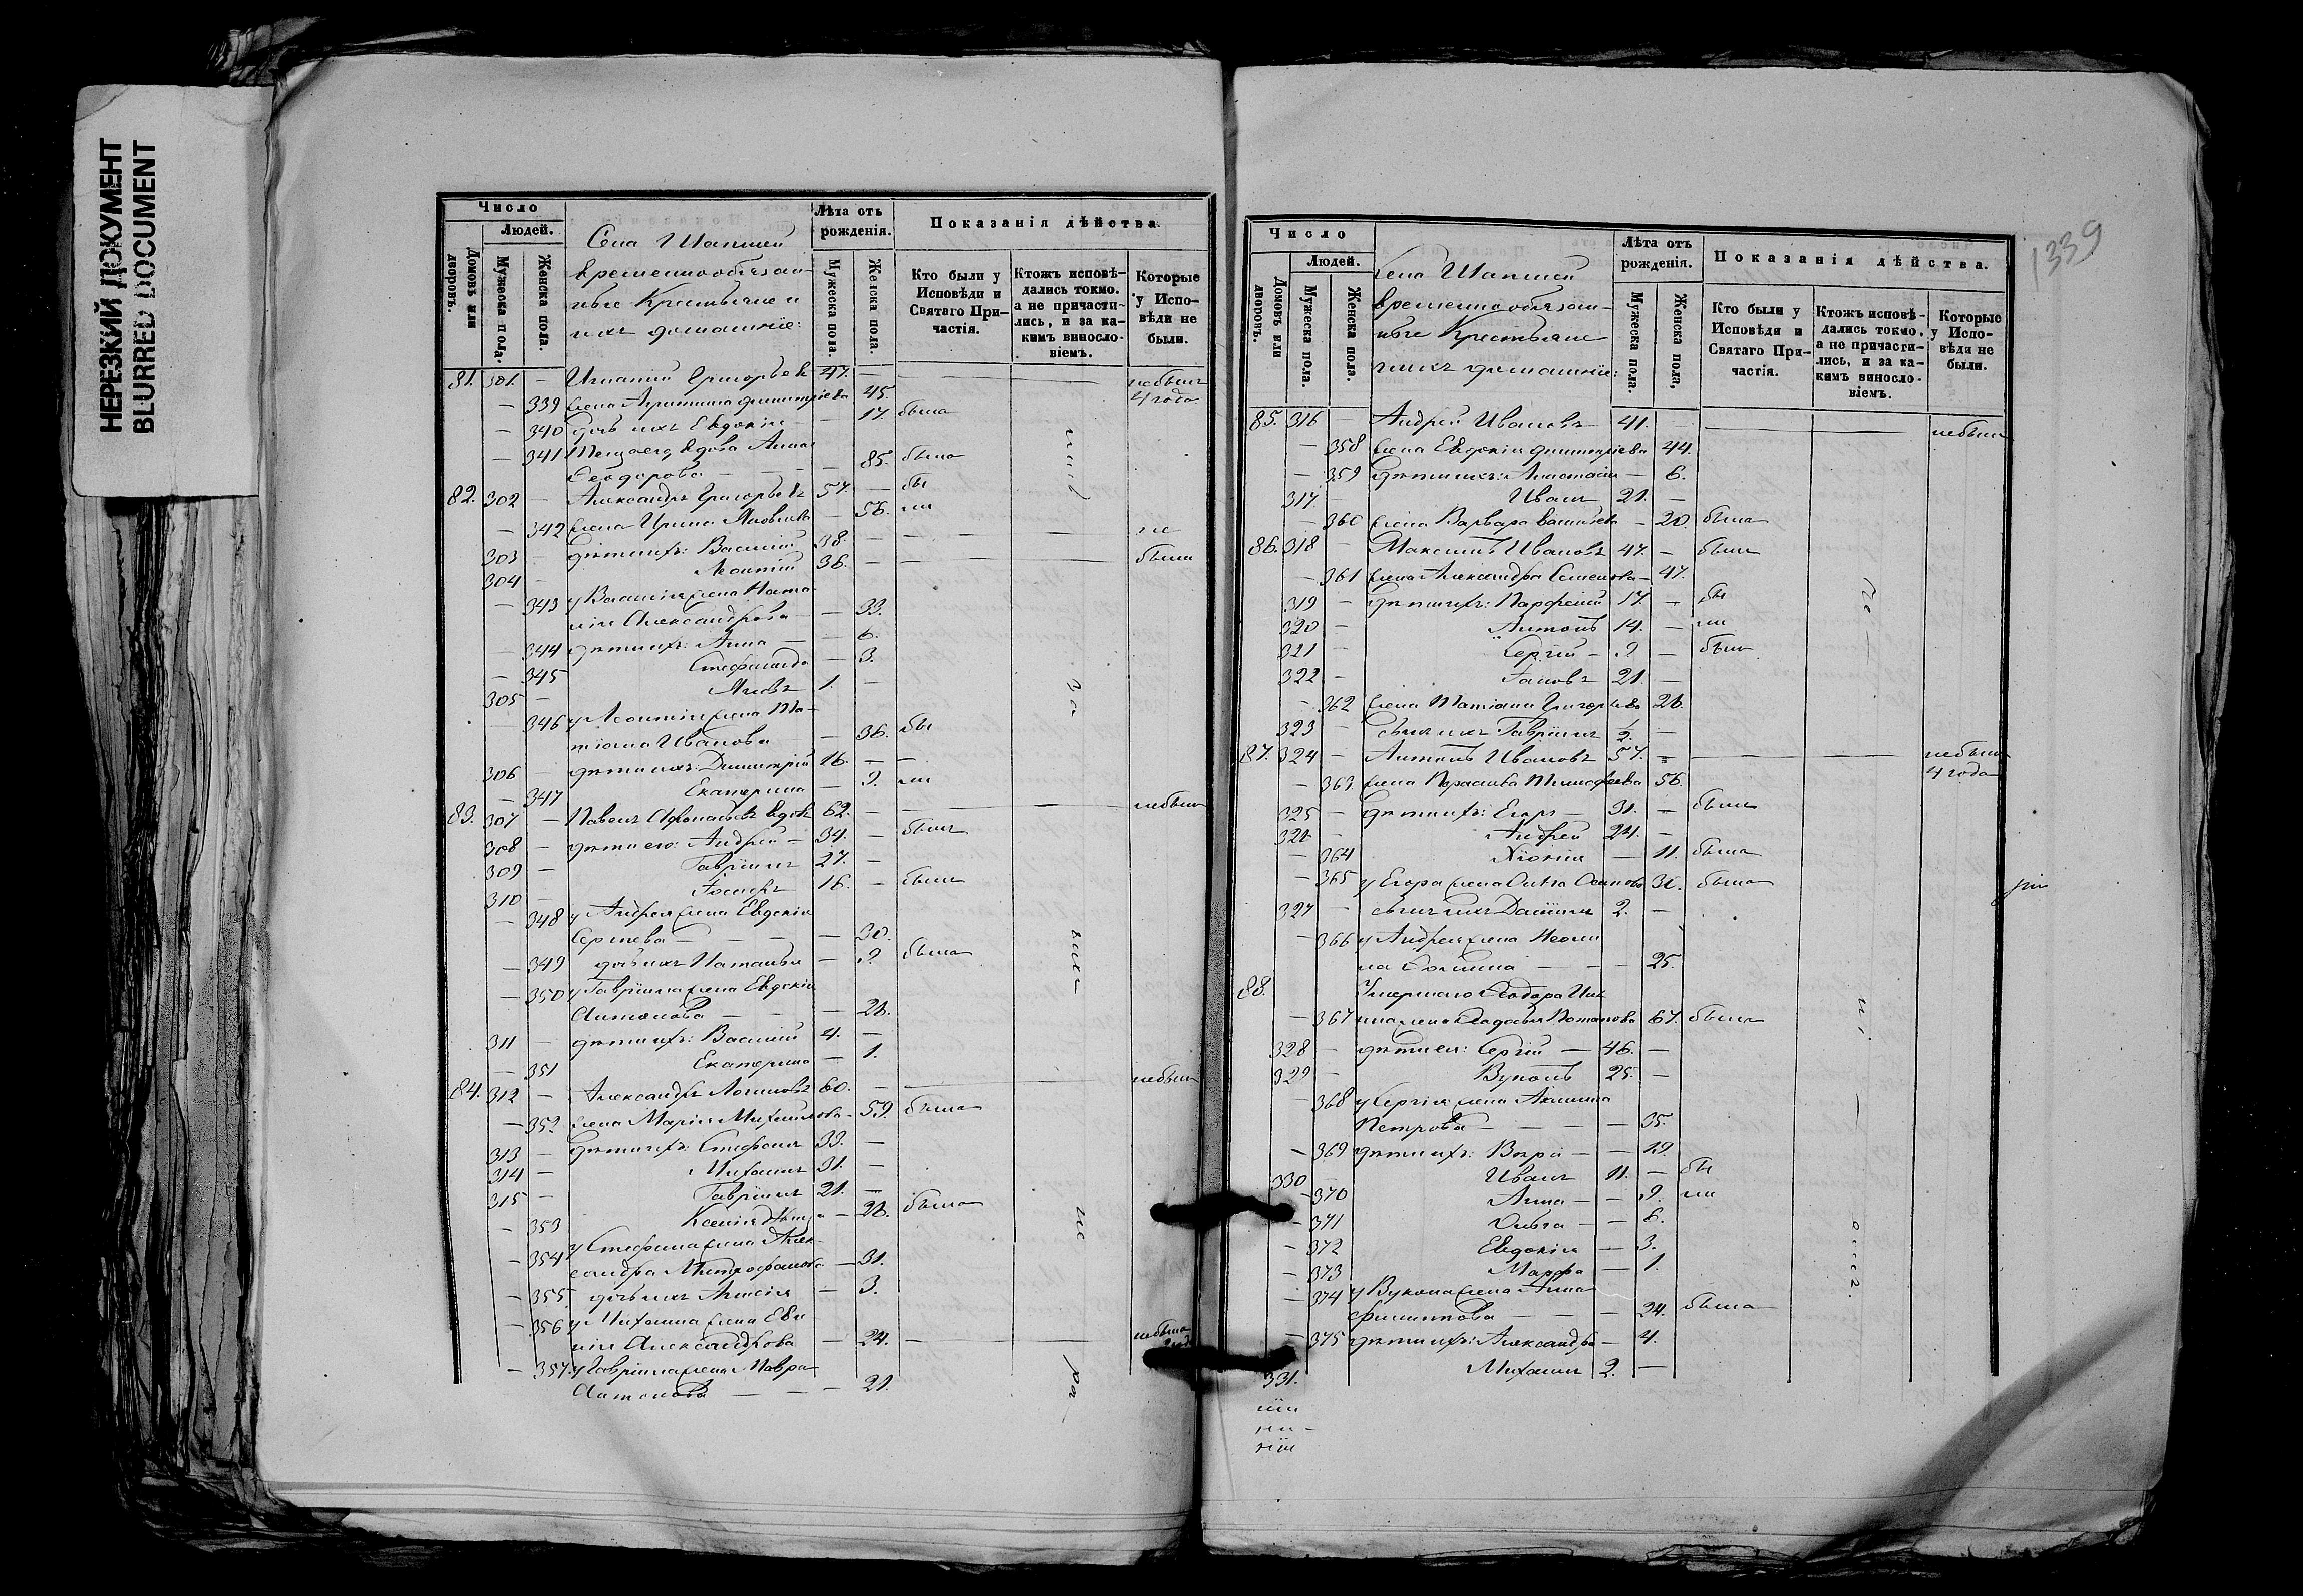 НЕРЕЗКИЙ ДОКУМЕНТ
BLURRED DOCUMENT
Число
Людей.
Домовъ или дворовъ.
Мужеска пола.
Женска пола.
Села
временнообязан-
ные Крестьяне и
ихъ домашніе:
Лѣта отъ рожденія.
Мужеска пола.
Женска пола.
Показанія дѣйства.
Кто были у Исповѣди и Святаго При-частія.
Ктожъ исповѣ-дались токмо, а не причасти-лись, и за ка-кимъ винослo-віемъ.
Которые у Испо-вѣди не были.
81. 301. — Игнатій Григорьевъ 47. — небылъ
— 339 жена Димитріева 45. 4 года
— 340 дочь ихъ Евдокія 17. была
— 341 вдова Анна
Феодорова — — — 85. была
82. 302 — Александръ Григорьевъ 57. — бы
— 342 жена Ирина Яковлева — 56. ли
303 — дѣти ихъ: Василій 38. — не
304 — Леонтій 36. — были
— 343 у Василія жена Ната-
лія Александрова — 33.
— 344 дѣти ихъ: Анна — — 6.
— 345 Стефанида — 3.
305 — Яковъ 1. —
— 346 у Леонтія жена Та-
тіана Иванова — 36. бы
306 — дѣти ихъ: Димитрій 16. —
— 347 Екатерина — 9. ли
83. 307 — Павелъ Афонасьевъ вдовъ 62. — небылъ
308 — дѣти его: Андрей — 34. — былъ
309 — Гавріилъ 27. —
310 — Іосифъ 16. — былъ
— 348 у Андрея жена Евдокія
Сергіева — — — 30.
— 349 дочь ихъ Наталья — 9. была
— 350 у Гавріила жена Евдокія
Антонова — — — 28.
311 — дѣти ихъ: Василій 4. —
— 351 Екатерина — 1.
84. 312 — Александръ Логиновъ 60. — небылъ
— 352 жена Марія Михайлова — 59. была
313 — дѣти ихъ: Стефанъ 33. —
314 — Михаилъ 31. —
315 — Гавріилъ 21. —
— 353 Ксенія — 28. была
— 354 у Стефана жена Алек-
сандра Митрофанова — 31.
— 355. дочь ихъ Анисія — 3.
— 356 у Михаила жена Ев
Александрова — 24. — небыла
— 357. у Гавріила жена Мавра
Антонова — — — 21.
1339
Число
Людей.
Домовъ или дворовъ.
Мужеска пола.
Женска пола.
Села
временнообязан-
ные Крестьяне
и ихъ домашніе:
Лѣта отъ рожденія.
Мужеска пола.
Женска пола,
Показанія дѣйства.
Кто были у Исповѣди и Святаго При-частія.
Ктожъ исповѣ-дались токмо, а не причасти-лись, и за ка-кимъ винослo-віемъ.
Которые у Испо-вѣди не были.
85. 316 — Андрей Ивановъ 41. — небылъ
— 358 жена Евдокія Димитріева 44.
— 359 дѣти ихъ: Анастасія — 6.
317 — Иванъ 21. —
— 360 жена Варвара Васильева — 20. была
86. 318 — Максимъ Ивановъ 47. — былъ
— 361 жена Александра Семенова — 47.
319 — дѣти ихъ: Парфеній 17. — бы
320 — Антонъ 14. — ли
321 — Сергій — 9 — былъ
322 — Іаковъ 21. —
— 362 жена Татіана Григорьева 28.
323 — сынъ ихъ Гавріилъ ½. —
87. 324 — Антонъ Ивановъ 57. — небылъ
— 363 жена Параскева Тимофеева 56. 4 года
325 — дѣти ихъ: Егоръ — 31. — былъ
326 — Андрей 24. —
— 364 Хіонія — 11. была
— 365 у Егора жена Ольга Осипова 30. была
327 — сынъ ихъ Даніилъ 2. —
— 366 у Андрея жена Неони
ла Фомина — — — 25.
88. Умершаго Феодора
— 367 жена Феодосья Потапова 67. была
328 — дѣти ея: Сергій — 46. —
329 — Вуколъ 25. —
— 368 у Сергія жена Акилина
Петрова — — — 35.
— 369 дѣти ихъ: Вѣра — —
330 — Иванъ 11. — бы
— 370 Анна — — 9. ли
— 371 Ольга — — 6.
— 372 Евдокія — 3.
— 373 Марфа — 1.
— 374 у Вукола жена Анна
Филиппова — — 24. была
— 375 дѣти ихъ: Александра — 4.
331. Михаилъ 2. —